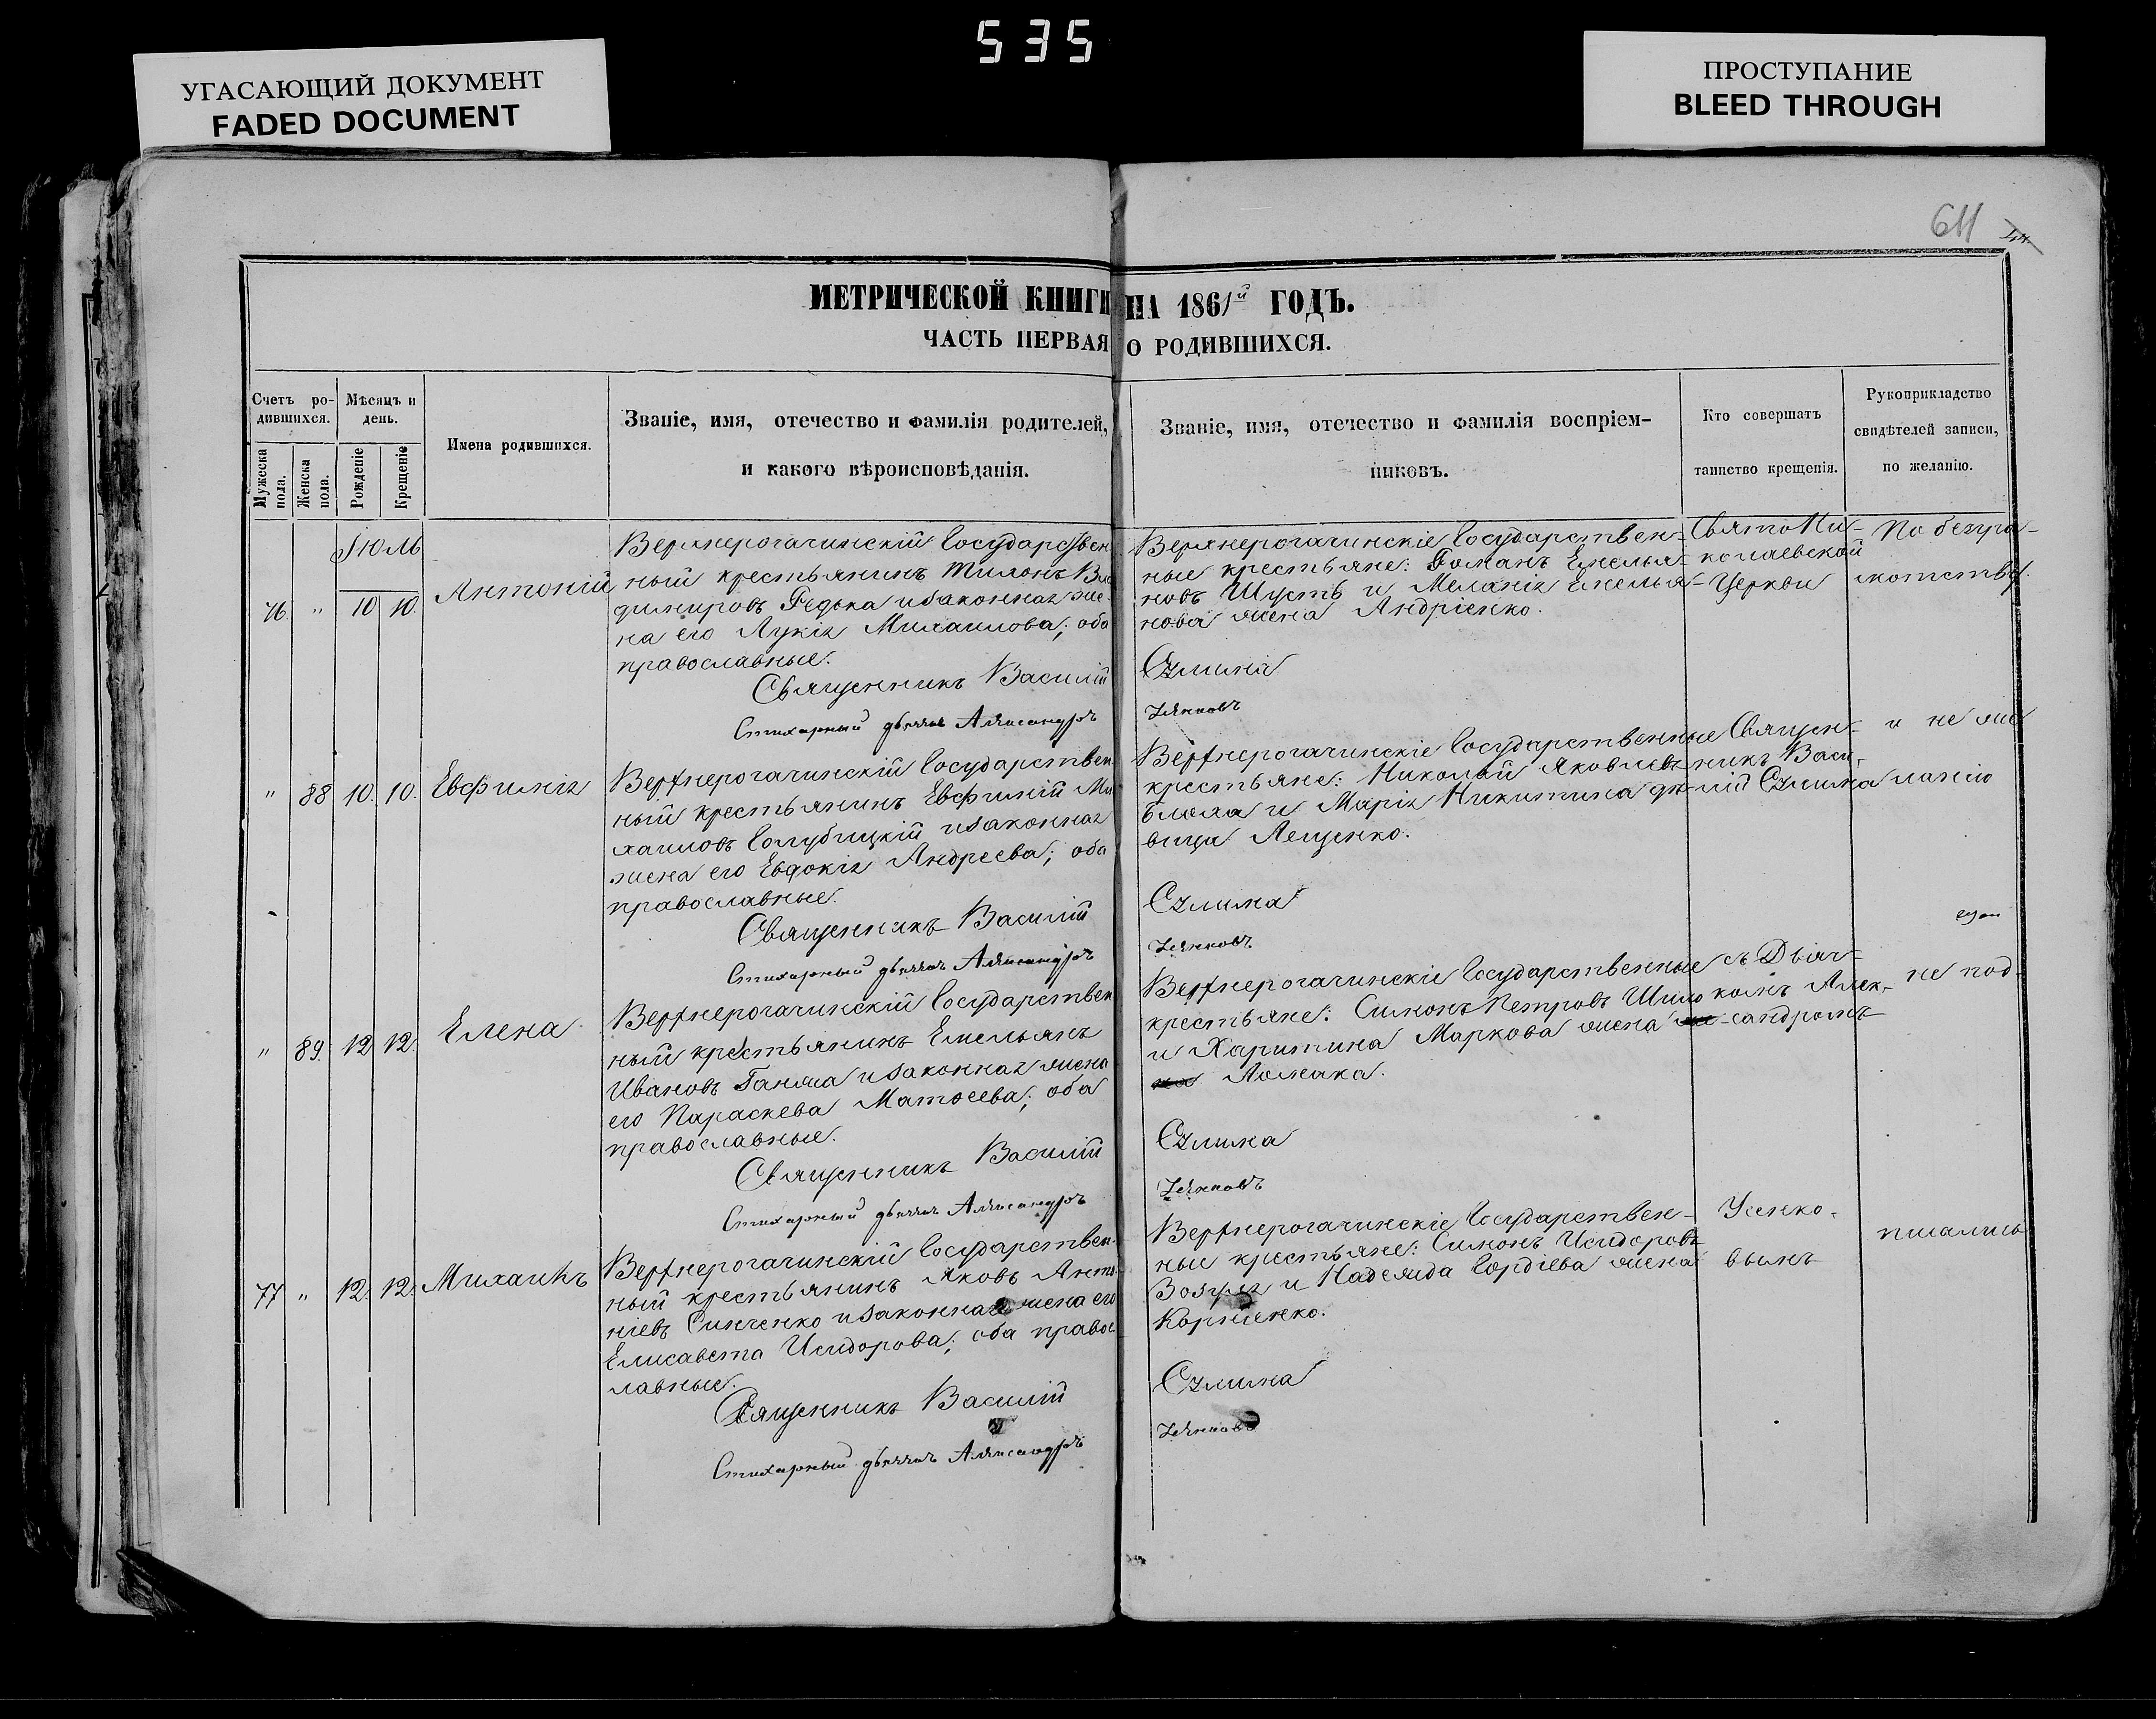 535
УГАСАЮЩИЙ ДОКУМЕНТ
FADED DOCUMENT
ПРОСТУПАНИЕ
BLEED THROUGH
611
МЕТРИЧЕСКОЙ КНИГИ НА 1861й ГОДЪ.
ЧАСТЬ ПЕРВАЯ О РОДИВШИХСЯ.
Счетъ ро-
дившихся.
Мужеска
пола.
Женска
пола.
Мѣсяцъ и
день.
Рожденіе
Крещеніе
Имена родившихся.
Званіе, имя, отечество и фамилія родителей,
и какого вѣроисповѣданія.
Званіе, имя, отечество и фамилія воспріем-
никовъ.
Кто совершатъ
таинство крещенія.
Рукоприкладство
свидѣтелей записи,
по желанію.
Іюль
76 " 10 10. Антоній
Верхнерогачинскій Государствен
ный крестьянинъ Тихонъ Вла
димировъ Редька и законная же-
на его Лукія Михаилова; оба
православные.
Священникъ Василій
Стихарный дьячекъ Александръ
Верхнерогачинскіе Государствен-
ные крестьяне: Романъ Емелья-
новъ Шусть и Меланія Емелья-
нова жена Андріенко.
" 88 10. 10. Евфимія
Верхнерогачинскій Государствен
ный крестьянинъ Евфимій Ми
хаиловъ Голубицкій и законная
жена его Евдокія Андреева; оба
православные.
Священникъ Василій
Стихарный дьячекъ Александръ
Верхнерогачинскіе Государственные
крестьяне: Николай Яковлевъ
и Марія Никитина дѣ-
вица Лещенко.
" 89. 12. 12. Елена
Верхнерогачинскій Государствен
ный крестьянинъ Емельянъ
Ивановъ Ганжа и законная жена
его Параскева Матѳеева; оба
православные.
Священникъ Василій
Стихарный дьячекъ Александръ
Верхнерогачинскіе Государственные
крестьяне: Симонъ Петровъ Шило
и Харитина Маркова жена
Ломака.
77 " 12. 12. Михаилъ
Верхнерогачинскій Государствен-
ный крестьянинъ Яковъ Анто-
ніевъ Синченко и законная жена его
Елисавета Исидорова; оба правос-
лавные.
Священникъ Василій
Стихарный дьячекъ Александръ
Верхнерогачинскіе Государствен-
ные крестьяне: Симонъ Исидоровъ
и Надежда Гордіева жена
Корніенко.
Свято Ни-
колаевской
Церкви
Священ-
никъ Васи-
лій
съ Дьяч-
комъ Алек-
сандромъ
Усенко-
вымъ
По безгра-
мотству
и не же
ланію
не под-
писались